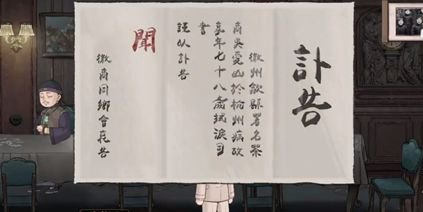 訃告
徽州歙縣著名茶
商吳憂山於杭州病故
享年七十八歲拭淚司
書
謹以訃告
聞
徽商同鄉會哀告